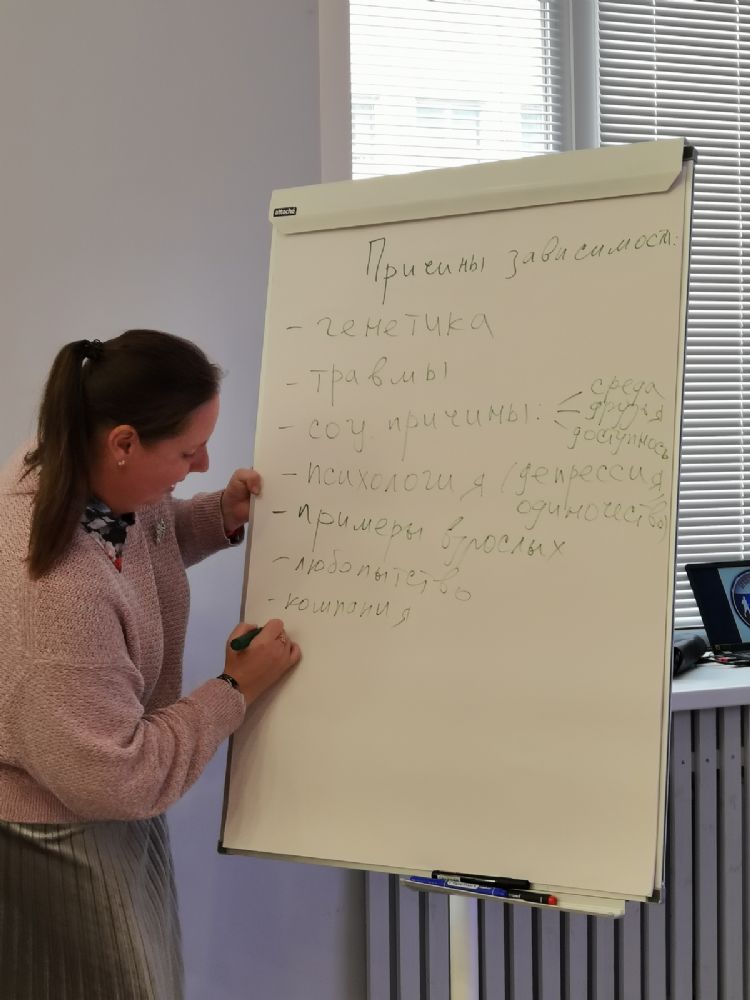 attache
Причины зависимост:
- генетика
- травмы
- соц. причины: среда
друзья
доступнось
- психология (депрессия,
одиночество)
- примеры взрослых
- любопытство
- компания